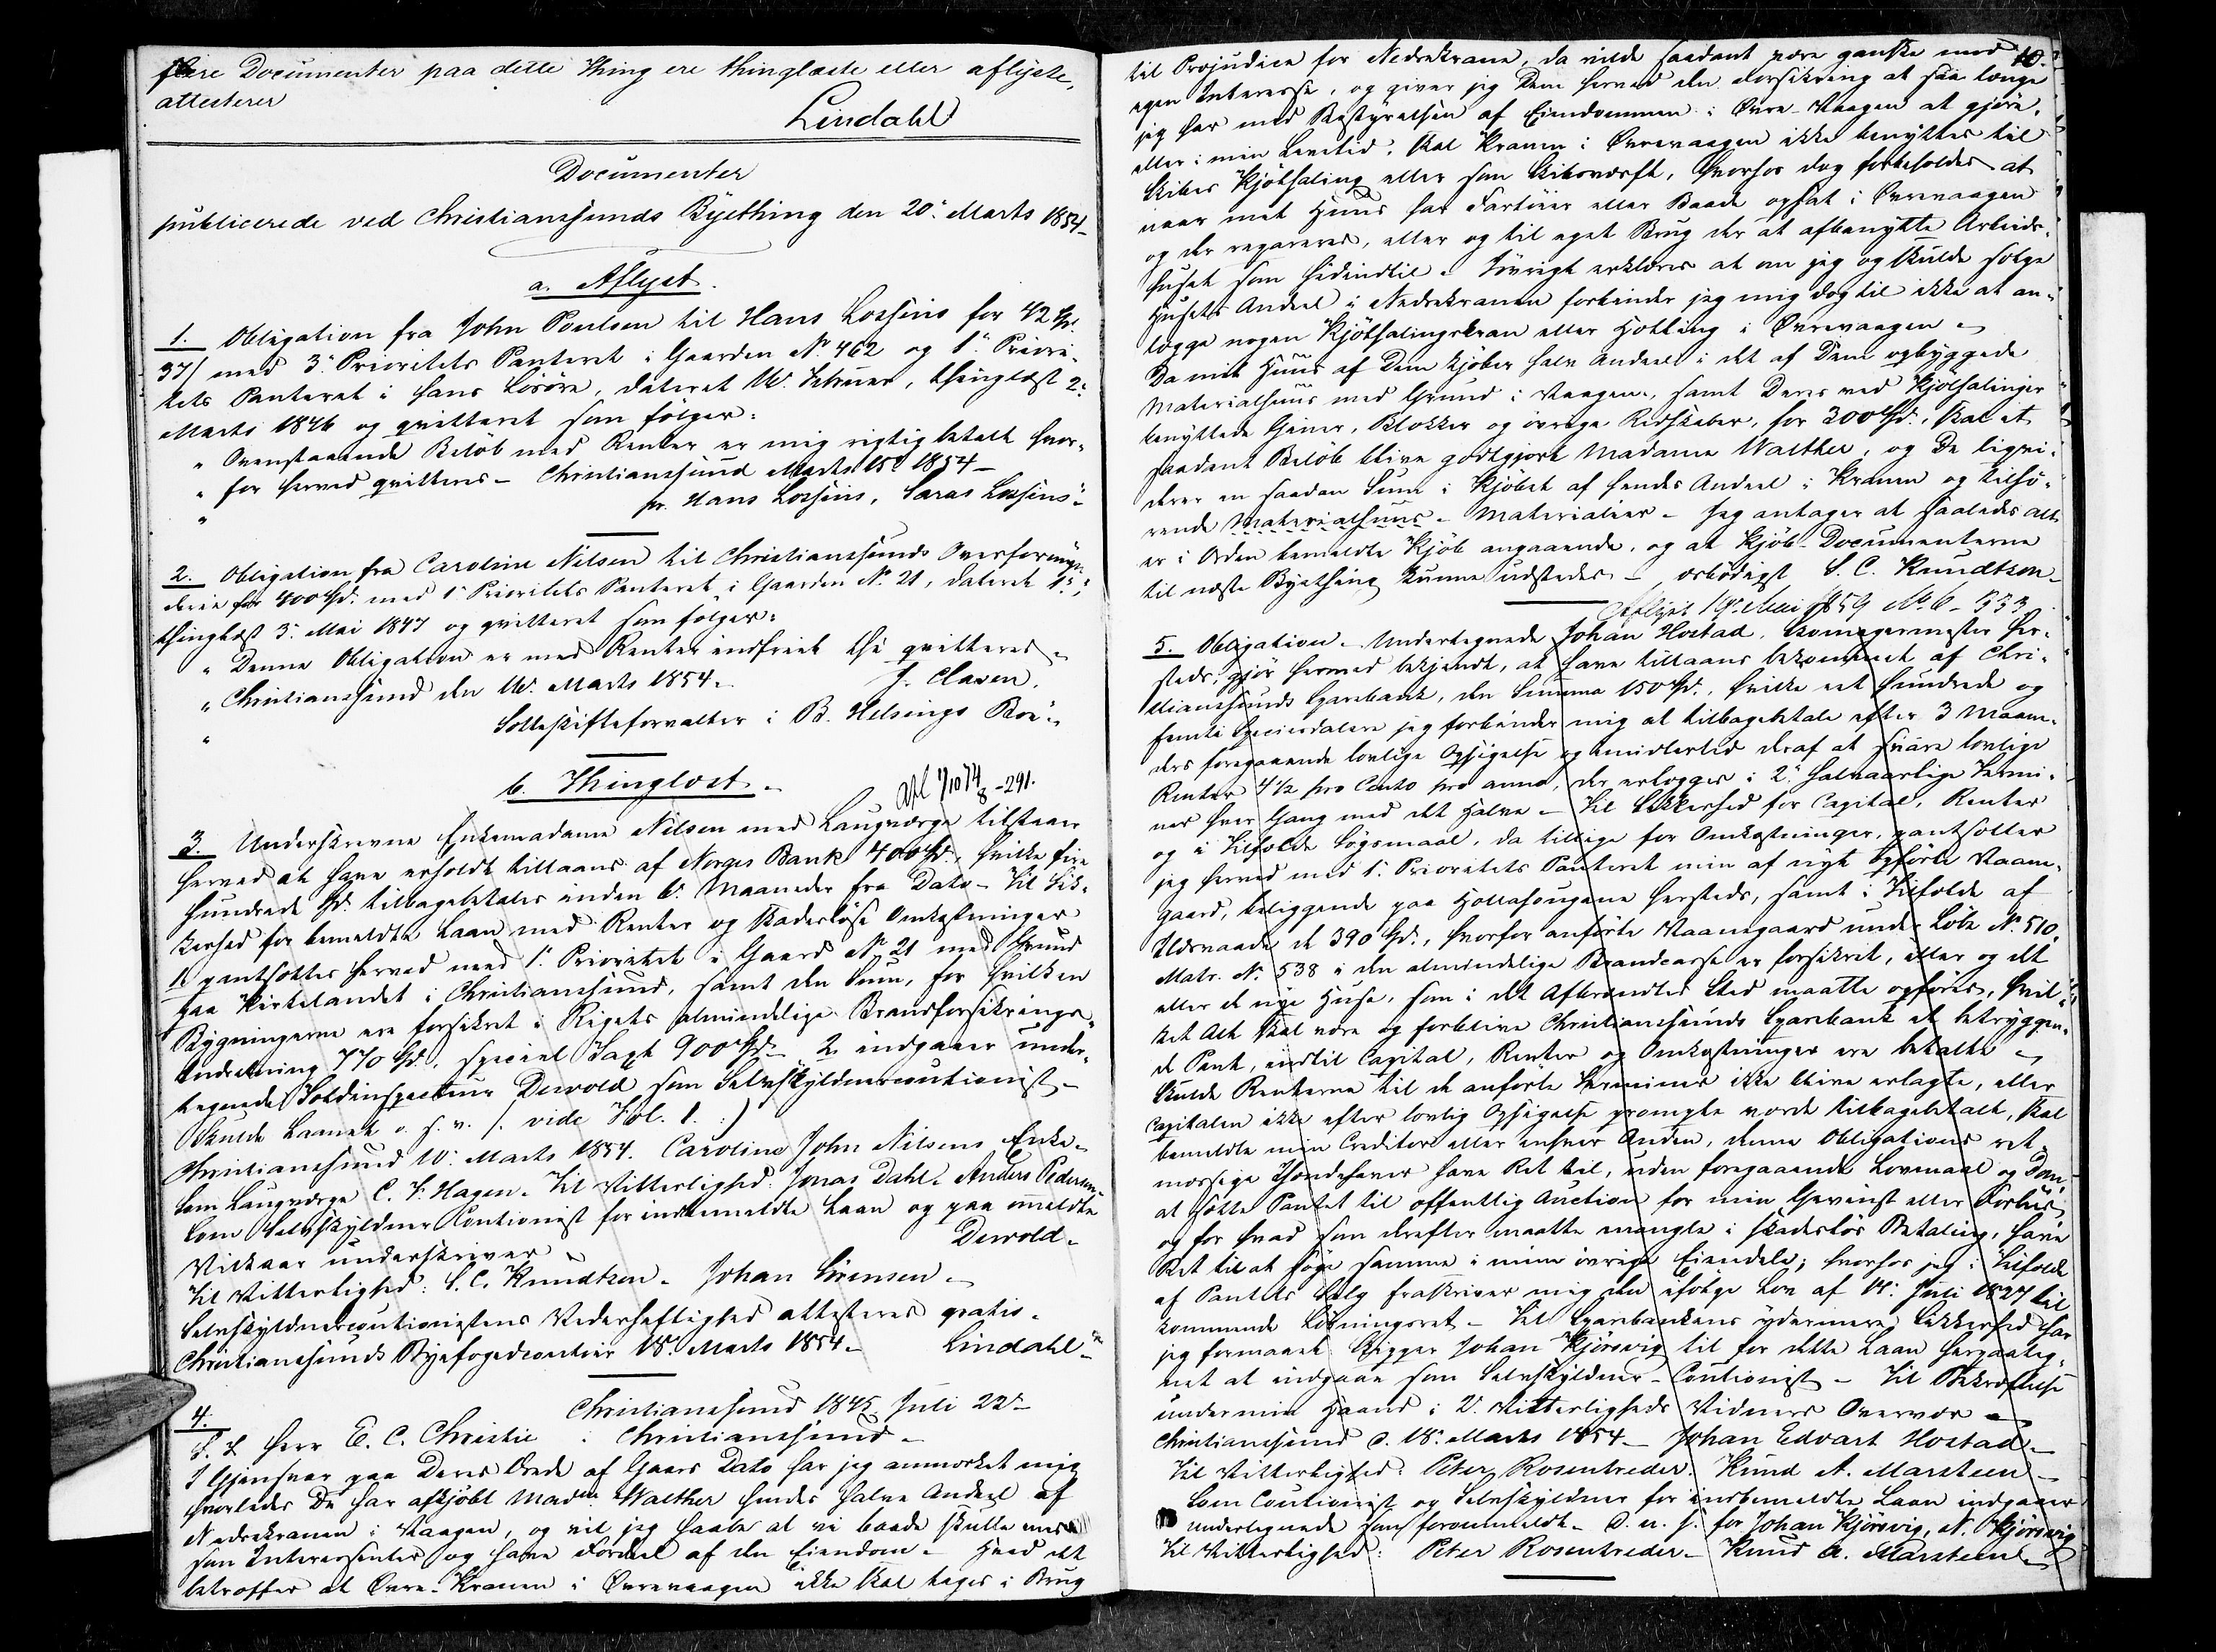 flere Documenter paa dette Thing ere thinglæste eller aflyste,
attesterer
Lindahl
Documenter
publicerede ved Christianssunds Byething den 20de Marts 1854
a. Aflyst.
1. Obligation fra John Poulsen til Hans Lossius for 42 Spd.
37 / med 3. Prioritets Panteret i Gaarden No 462 og 1. Priori-
tets Panteret i hans Løsøre, dateret 16. Februar, thinglæst 2.
Marts 1846 og qvitteret som følger:
" Ovenstaaende Beløb med Renter er mig rigtig betalt hvor-
" for herved qvitteres – Christianssund Marts 15. 1854 –
" pr. Hans Lossius, Saras Lossius"
2. Obligation fra Caroline Nilsen til Christianssunds Overformyn-
derie for 400 Spd. med 1. Prioritets Panteret i Gaarden No 21, dateret 1.,
thinglæst 3. Mai 1847 og qvitteret som følger:
" Denne Obligation er med Renter indfriet thi qvitteres –
" Christianssund den 16. Marts 1854. J. Clasen.
" Solleskifteforvalter i B. Helsings Boe"
b. Thinglæst.
Afl 1/10 74 8-291.
3. Underskrevne Enkemadame Nilsen med Laugværge tilstaaer
herved at have erholdt tillaans af Norges Bank 400 Spd., hvilke fire
hundrede Spd. tilbagebetales inden 6 Maaneder fra Dato – Til Sik-
kerhed for bemeldte Laan med Renter og skadesløse Omkostninger
1. pantsættes herved med 1. Prioritet i Gaard No 21 med Grund
paa Kirkelandet i Christianssund, samt den Sum, for hvilken
Bygningerne ere forsikret i Rigets almindelige Brandforsikrings-
Indretning 770 Spd., special Taxt 900 Spd. 2. indgaaer under-
tegnede Toldinspecteur Dewold som Selvskyldnercoutionist –
Skulde Laanet o. s. v. /. vide Fol. 1. :)
Christianssund 10. Marts 1854. Caroline John Nilsens Enke –
Som Laugværge C. F. Hagen. Til Vitterlighed: Jonas Dahl. Anders Pedersen
Som Selvskyldner Coutionist for indbemeldte Laan og paa ommeldte
Vilkaar underskriver Dewold –
Til Vitterlighed: S. C. Knudtzon – Johan Sørensen –
Selvskyldnercoutionistens Vederheftighed attesteres gratis –
Christianssunds Byefogedcontoir 18. Marts 1854 – Lindahl –
4. Christianssund 1845 Juli 22.
S. T. Herr E. C. Christie i Christianssund –
I Gjensvar paa Deres Ærede af Gaars Dato har jeg anmærket mig
hvorledes De har afkjøbt Madme Walther hendes halve Andeel af
Nedrekranen i Vaagen, og vil jeg haabe at vi baade skulle enes
som Interessenter og have Fordeel af den Eiendom – Hvad det
betræffer at Øvre-Kranen i Øvrevaagen ikke skal tages i Brug
10.
til Præjudice for Nedrekrane, da vilde saadant være ganske mod
egen Interesse, og giver jeg Dem herved den Forsikring at saa længe
jeg har med Bestyrelsen af Eiendommen i Øvre-Vaagen at gjøre,
eller i min Levetid, skal Kranen i Øvrevaagen ikke benyttes til
Skibes Kjølhaling eller som Skibsværft, hvorhos dog forbeholdes at
naar mit Huus har Fartøier eller Baade opsat i Øvrevaagen
og der reparered, eller og til eget Brug der at afbenytte Arbeids-
huset som hidindtil – Iøvrigt erklæres at om jeg og skulde sælge
Husets Andeel i Nedrekranen forbinder jeg mig dog til ikke at an-
lægge nogen Kjølhalingskran eller Holking i Øvrevaagen –
Da mit Huus af Dem kjøber halv Andeel i det af Dem opbyggede
Materialhuus med Grund i Vaagen, samt Deres ved Kjølhalinger
benyttede Giner, Blokker og øvrige Redskaber, for 300 Spd., skal et
saadant Beløb blive godtgjort Madame Walther, og De liqvi-
derer en saadan Sum i Kjøbet af hendes Andeel i Kranen og tilhø-
rende Materialhuus – Materialier – Jeg antager at saaledes alt
er i Orden bemeldte Kjøb angaaende, og at Kjøb-Documenterne
til næste Byething kunne udstedes – ærbødigst S. C. Knudtzon –
Aflyst 19. Mai 1859 No 6 - 553
5. Obligation. Undertegnede Johan Hostad, her-
steds, gjør herved bekjendt, at have tillaans bekommet af Chri-
stianssunds Sparebank, den Summa 150 Spd., hvilke eet hundrede og
femti Speciesdalere jeg forbinder mig at tilbagebetale efter 3 Maane-
ders foregaaende lovlige Opsigelse og imidlertid deraf at svare lovlige
Renter 4 1/2 pro Cento pro anno, der erlægges i 2 halvaarlige Termi-
ner hver Gang med det Halve – Til Sikkerhed for Capital, Renter
og i Tilfælde Søgsmaal, da tillige for Omkostninger, pantsætter
jeg herved med 1. Prioritets Panteret min af nyt opførte Vaane-
gaard, beliggende paa hersteds, samt i Tilfælde af
Ildsvaade de 390 Spd., hvorfor anførte Vaanegaard under Løbe No 510,
Matr. No 538 i den almindelige Brandcasse er forsikret, eller og det
eller de nye Huse, som i det Afbrændtes Sted maatte opføres, hvil-
ket Alt skal være og forblive Christianssunds Sparebank et betryggen-
de Pant, indtil Capital, Renter og Omkostninger ere betalte –
Skulde Renterne til de anførte Terminer ikke blive erlagte, eller
Capitalen ikke efter lovlig Opsigelse prompte vorde tilbagebetalt, skal
bemeldte min Creditor eller enhver Anden, denne Obligations ret-
mæssige Ihændehaver have Ret til, uden foregaaende Lovmaal og Dom,
at sætte Pantet til offentlig Auction for min Gevinst eller Forliis
og for hvad som derefter maatte mangle i skadesløs Betaling, have
Ret til at søge samme i mine øvrige Eiendele; hvorhos jeg i Tilfælde
af Pantets Salg fraskriver mig den ifølge Lov af 14. Juli 1827 til-
kommende Løsningsret – Til Sparebankens ydermere Sikkerhed har
jeg formaaet Skipper Johan Kjørsvig til for dette Laan herpaateg-
net at indgaae som Selvskyldner-Coutionist – Til Bekræftelse
under min Haand i 2 Vitterligheds Vidners Overvær –
Christianssund d. 18. Marts 1854 – Johan Edvart Hostad –
Til Vitterlighed: Peter Rosentreder. Knud A. Marsteen –
Som Coutionist og Selvskyldner for indbemeldte Laan indgaaer
undertegnede som forommeldt – D. u. s. for Johan Kjørsvig, N. Kjørsvig
Til Vitterlighed: Peter Rosentreder – Knud A. Marsteen –